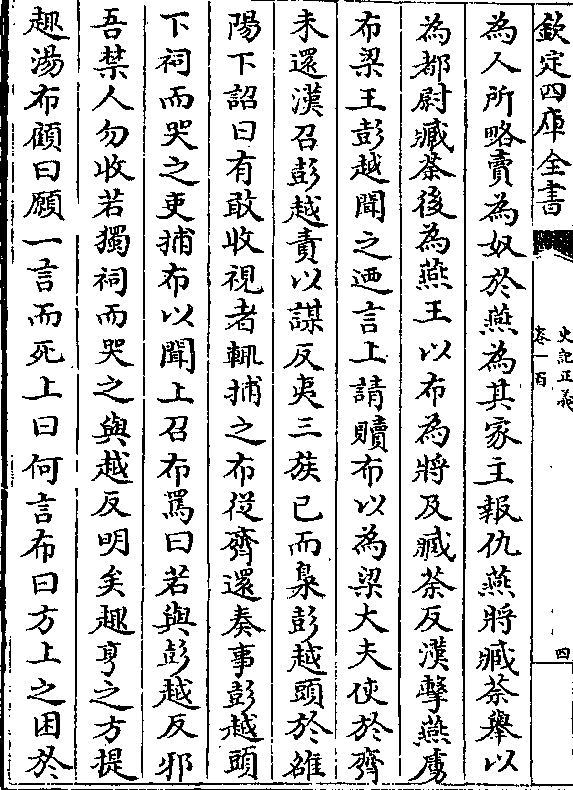 欽定四庫全書
史記正義
卷一百
四
為人所略賣為奴於燕為其家主報仇燕將臧荼舉以
為都尉臧荼後為燕王以布為將及臧荼反漢擊燕虜
布梁王彭越聞之迺言上請贖布以為梁大夫使於齊
未還漢召彭越責以謀反夷三族已而梟彭越頭於雒
陽下詔曰有敢收視者輒捕之布從齊還奏事彭越頭
下祠而哭之吏捕布以聞上召布罵曰若與彭越反邪
吾禁人勿收若獨祠而哭之與越反明矣趣亨之方提
趣湯布顧曰願一言而死上曰何言布曰方上之困於